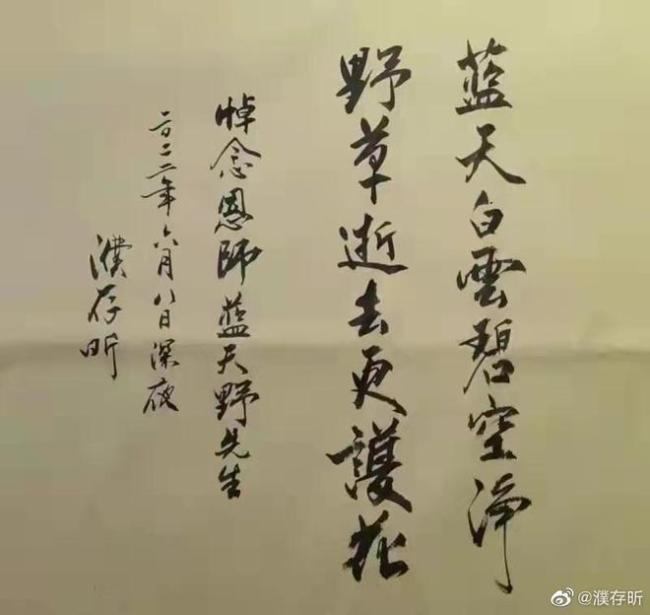 蓝天白雲碧空淨
野草逝去更護花
悼念恩師蓝天野先生
二〇二二年六月八日深夜
濮存昕
@濮存昕